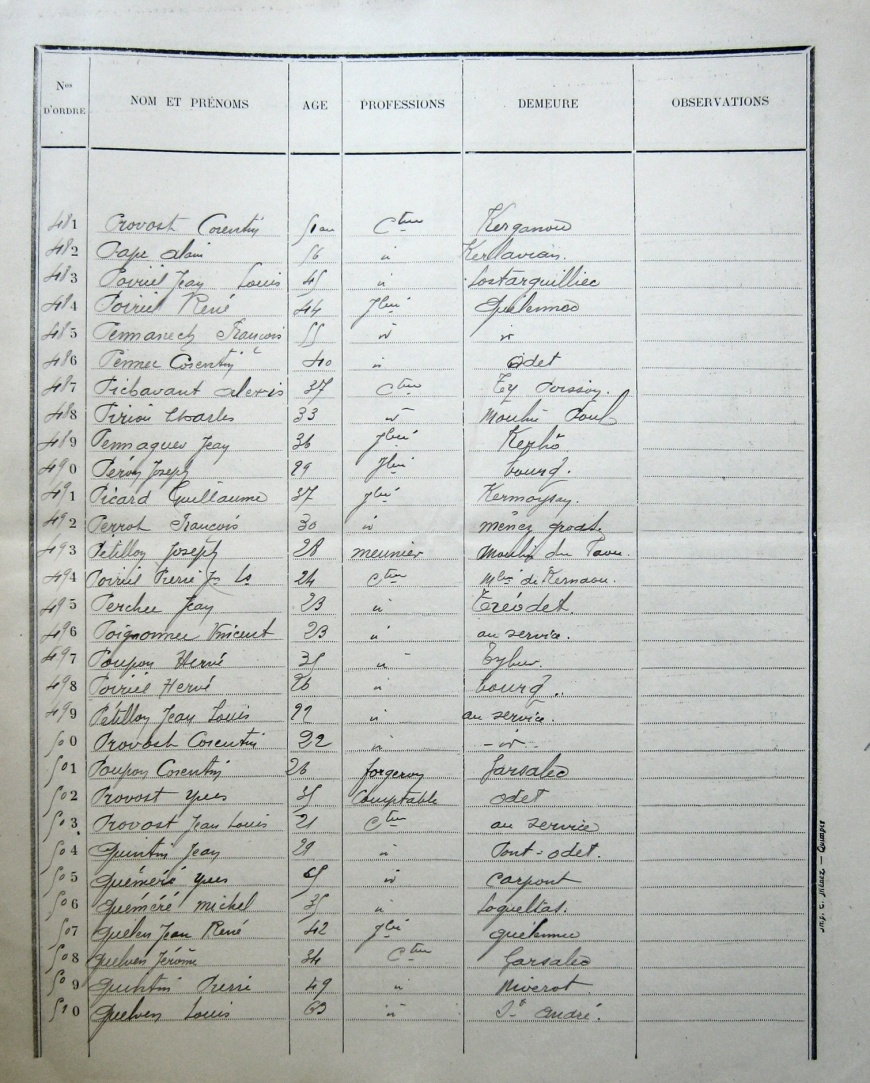 Nos D'ORDRE NOM ET PRÉNOMS AGE PROFESSIONS DEMEURE OBSERVATIONS
481 Provost Corentin 51 an Cteur
482 Pape Alain 56 " Kerlavian.
483 Poiriel Jean Louis 45 " Lostarguilliec
484 Poiriel René 44 Jlier Quélennec
485 Pennanech François 55 " "
486 Pennec Corentin 40 " Odet
487 Pichavant Alexis 37 Cteur Ty Poisson.
488 Pirion Charles 33 " Moulin Poul
489 Pennaguer Jean 36 Jlier
490 Péron Joseph 29 Jlier bourg.
491 Picard Guillaume 37 Jlier Kermoysan.
492 Perrot François 30 " Ménez groas.
493 Pétillon Joseph 28 meunier Moulin du
494 Poiriel Pierre Jn Ls 24 Cteur Min de Kernaou.
495 Perchec Jean 23 " Tréodet.
496 Poignonnec Vincent 23 " au service.
497 Poupon Hervé 35 "
498 Poiriel Hervé 26 " bourg.
499 Pétillon Jean Louis 22 " au service.
500 Provost Corentin 22 " - " -
501 Poupon Corentin 26 forgeron Garsalec
502 Provost Yves 35 Comptable Odet
503 Provost Jean Louis 21 Cteur au service
504 Quintin Jean 29 " Pont-Odet.
505 Quéméré Yves 65 " Carpont
506 Quéméré Michel 35 " Loqueltas.
507 Quelven Jean René 42 Jlier Quélennec
508 Quelven Jérôme 34 Cteur Garsalec
509 Quintin Pierre 49 " Niverot
510 Quelven Louis 63 " St André.
Imp. E. Ménez — Quimper